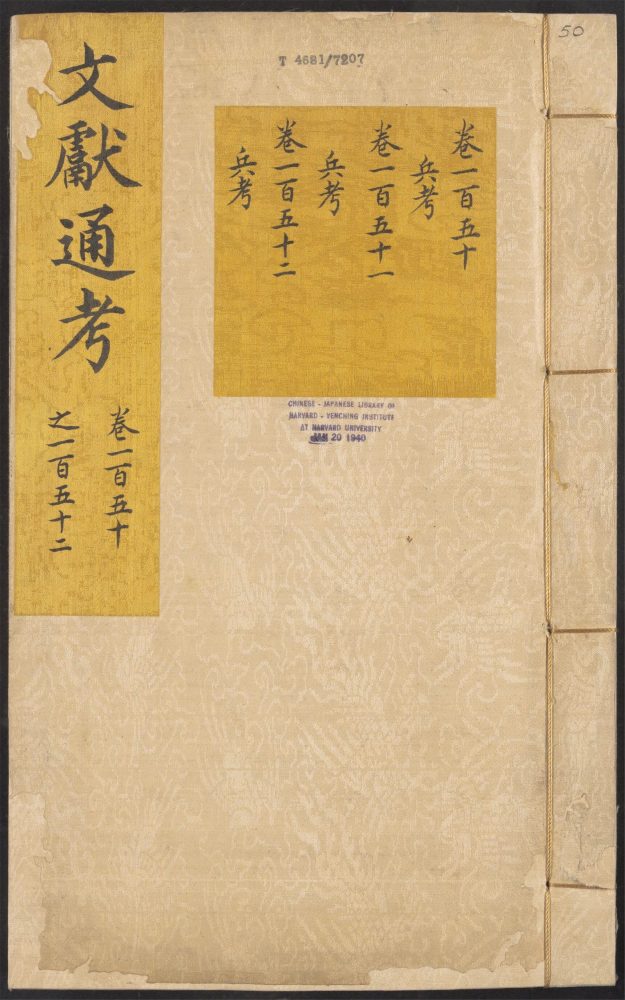 50
T 4681/7207
文獻通考
卷一百五十
之一百五十二
卷一百五十
兵考
卷一百五十一
兵考
卷一百五十二
兵考
CHINESE - JAPANESE LIBRARY OF
HARVARD - YENCHING INSTITUTE
AT HARVARD UNIVERSITY
JAN 20 1940